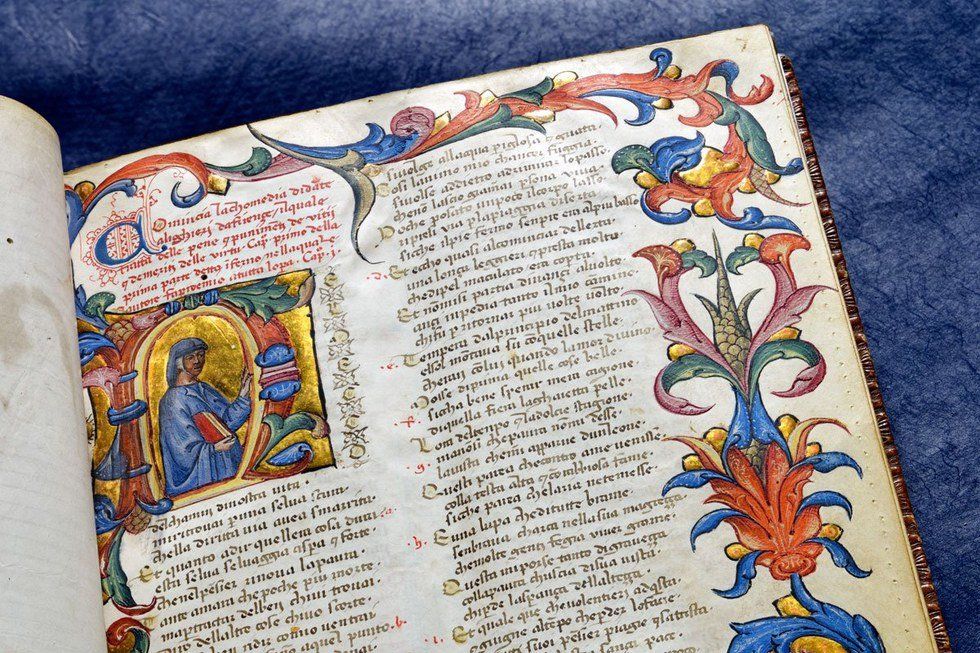 Comincia lachomedia didāte
alughieri dafirenze/ ilquale
tratta delle pene q punimen de vitij
q demeriti delle virtu. Cap primo della
prima parte detta iferno nellaqual e
autore fa prohemio atutta lopa. Cap. j.
delchamin dinostra vita.
miritrovai p una selva scura
chella diritta via avea smarita.
Et quanto adir quellera cosa dura .a.
esta selva selvaggia aspa q forte
chenelpēsier rinova lapaura.
Tante amara che poche piu morte.
map trattar delben chivi trovai.
diro dellaltre cose chivo scorte.
Io non so ben ridir comio ventrai
punto .b.
sivolse allacqua pigliosa q guata.
Cosi lanimo mio chancor fuggiva.
sivolse addietro adrimirar lo passo
che nō lascio gia mai psona viva.
Poi che posato un poco ilcorpo lasso
ripresi via p lapiaggia diserta
siche ilpie fermo sempre era alpiu basso
.d. Et echo quasi alcominciar dellerta
una lonza leggier q presta molto
chedipel maculato era copta.
Et nō misi partia dināzi alvolto
anzi inpediva tanto ilmio camino
chifu p ritornar piu volte volto.
.e. Tempera dalprincipio delmatino
elsol montava su coquelle stelle.
cheran cōlui quando lamor divino
mosse diprima quelle cose belle.
sicha bene sperar mera cagione
diquella fiera laghaietta pelle.
.f. Lora deltempo q ladolcie stagione
manō si chepaura nō mi desse.
.g. lavista chemi apparve dunleone.
Questi parea checontro ame venisse
colla testa alta q cō rabbiosa fame.
siche parea chelaria netemesse.
.h. Et una lupa chedi tutte brame.
senbiava charca nella sua magreza
che molte genti fe gia viver grame.
Questa mi porse tanto digraveza
collapaura chuscia disua vista.
chio perde lasperāça dellalteza.
.i. Et quale que chevolentieri aqsta.
q giugne iltempo cheperder loface.
che tutti suoi pēsier piange qsatrista